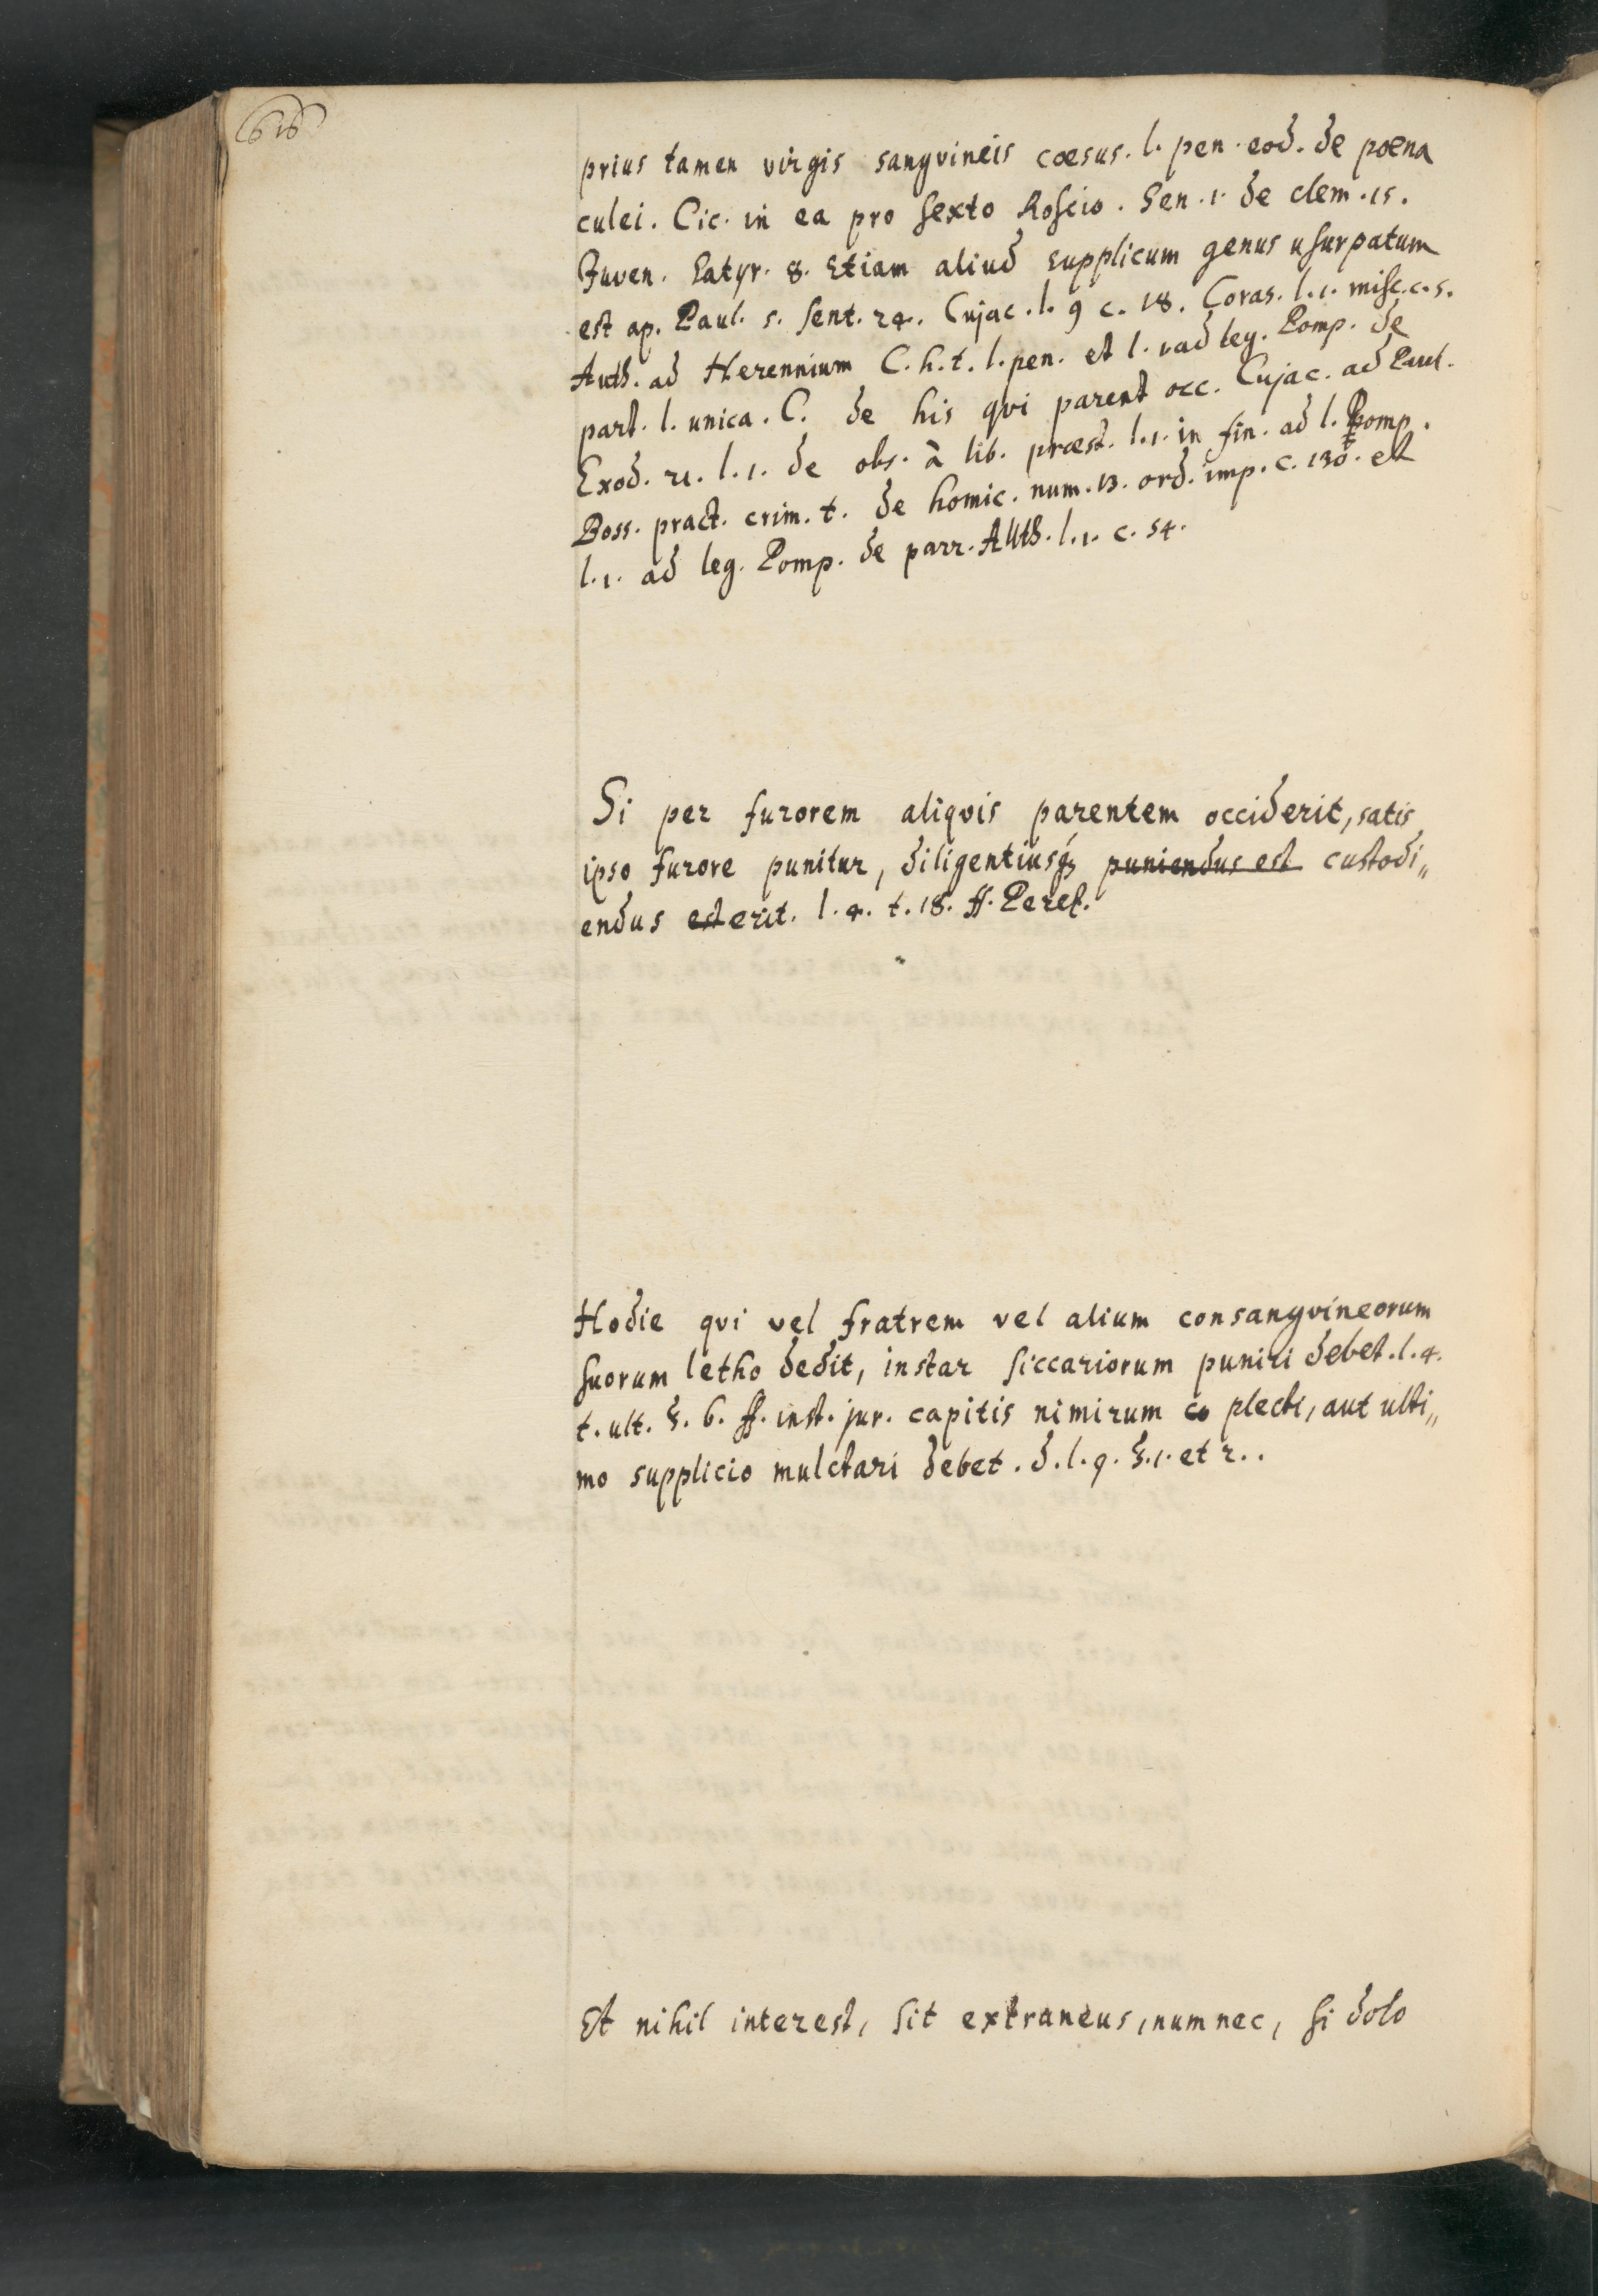 616
prius tamen virgis sangvineis cœsus. l. pen. eod. de pœna
culei. Cic. in ea pro Sexto Roscio. Sen. 1. de clem. 15.
Juven. Satyr. 8. Etiam aliud supplicum genus usurpatum
est ap. Paul. 5. sent. 24. Cujac. l. 9 c. 18. Coras. l. 1. misc. c. 5.
Auth. ad Herennium C. h. t. l. pen. et l. 1 ad leg. Pomp. de
parr. l. unica. C. de his qvi parent occ. Cujac. ad Paul.
Exod. 21. l. 1. de obs. à lib. præst. l. 1. in fin. ad l. Pomp.
Boss. pract. crim. t. de homic. num. 13. ord. imp. c. 130. et
l. 1. ad leg. Pomp. de parr. Auth. l. 1. c. 54.
Si per furorem aliqvis parentem occiderit, satis
ipso furore punitur, diligentiusq; puniendus est custodi„
endus est erit. l. 4. t. 18. ff. Perez.
Hodie qvi vel fratrem vel alium consangvineorum
suorum letho dedit, instar siccariorum puniri debet. l. 4.
t. ult. §. 6. ff. inst. jur. capitis nimirum co plecti, aut ulti„
mo supplicio mulctari debet. d. l. 9. §. 1. et 2..
Et nihil interest, sit extraneus, num nec, si dolo